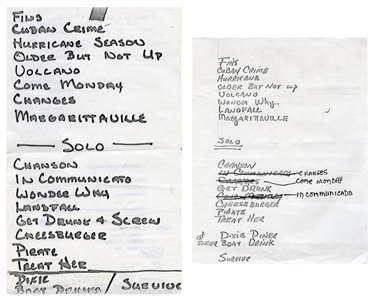 FINS
CUBAN CRIME
HURRICANE SEASON
OLDER BUT NOT UP
VOLCANO
COME MONDAY
CHANGES
MARGARITTAVILLE
SOLO
CHANSON
IN COMMUNICATO
WONDER WHY
LANDFALL
GET DRUNK & SCREW
CHEESBURGER
PIRATE
TREAT HER
DIXIE
BOAT DRINKS / SURVIVE
FINS
CUBAN CRIME
HURRICANE
OLDER BUT NOT UP
VOLCANO
WONDER WHY..
LANDFALL
MARGARITAVILLE
SOLO
CHANSON
IN COMMUNICADO CHANGES
COME MONDAY
GET DRUNK
IN COMMUNICADO
CHEESEBURGER
PIRATE
TREAT HER
1st ENCORE
DIXIE DINER
BOAT DRINK
SURVIVE